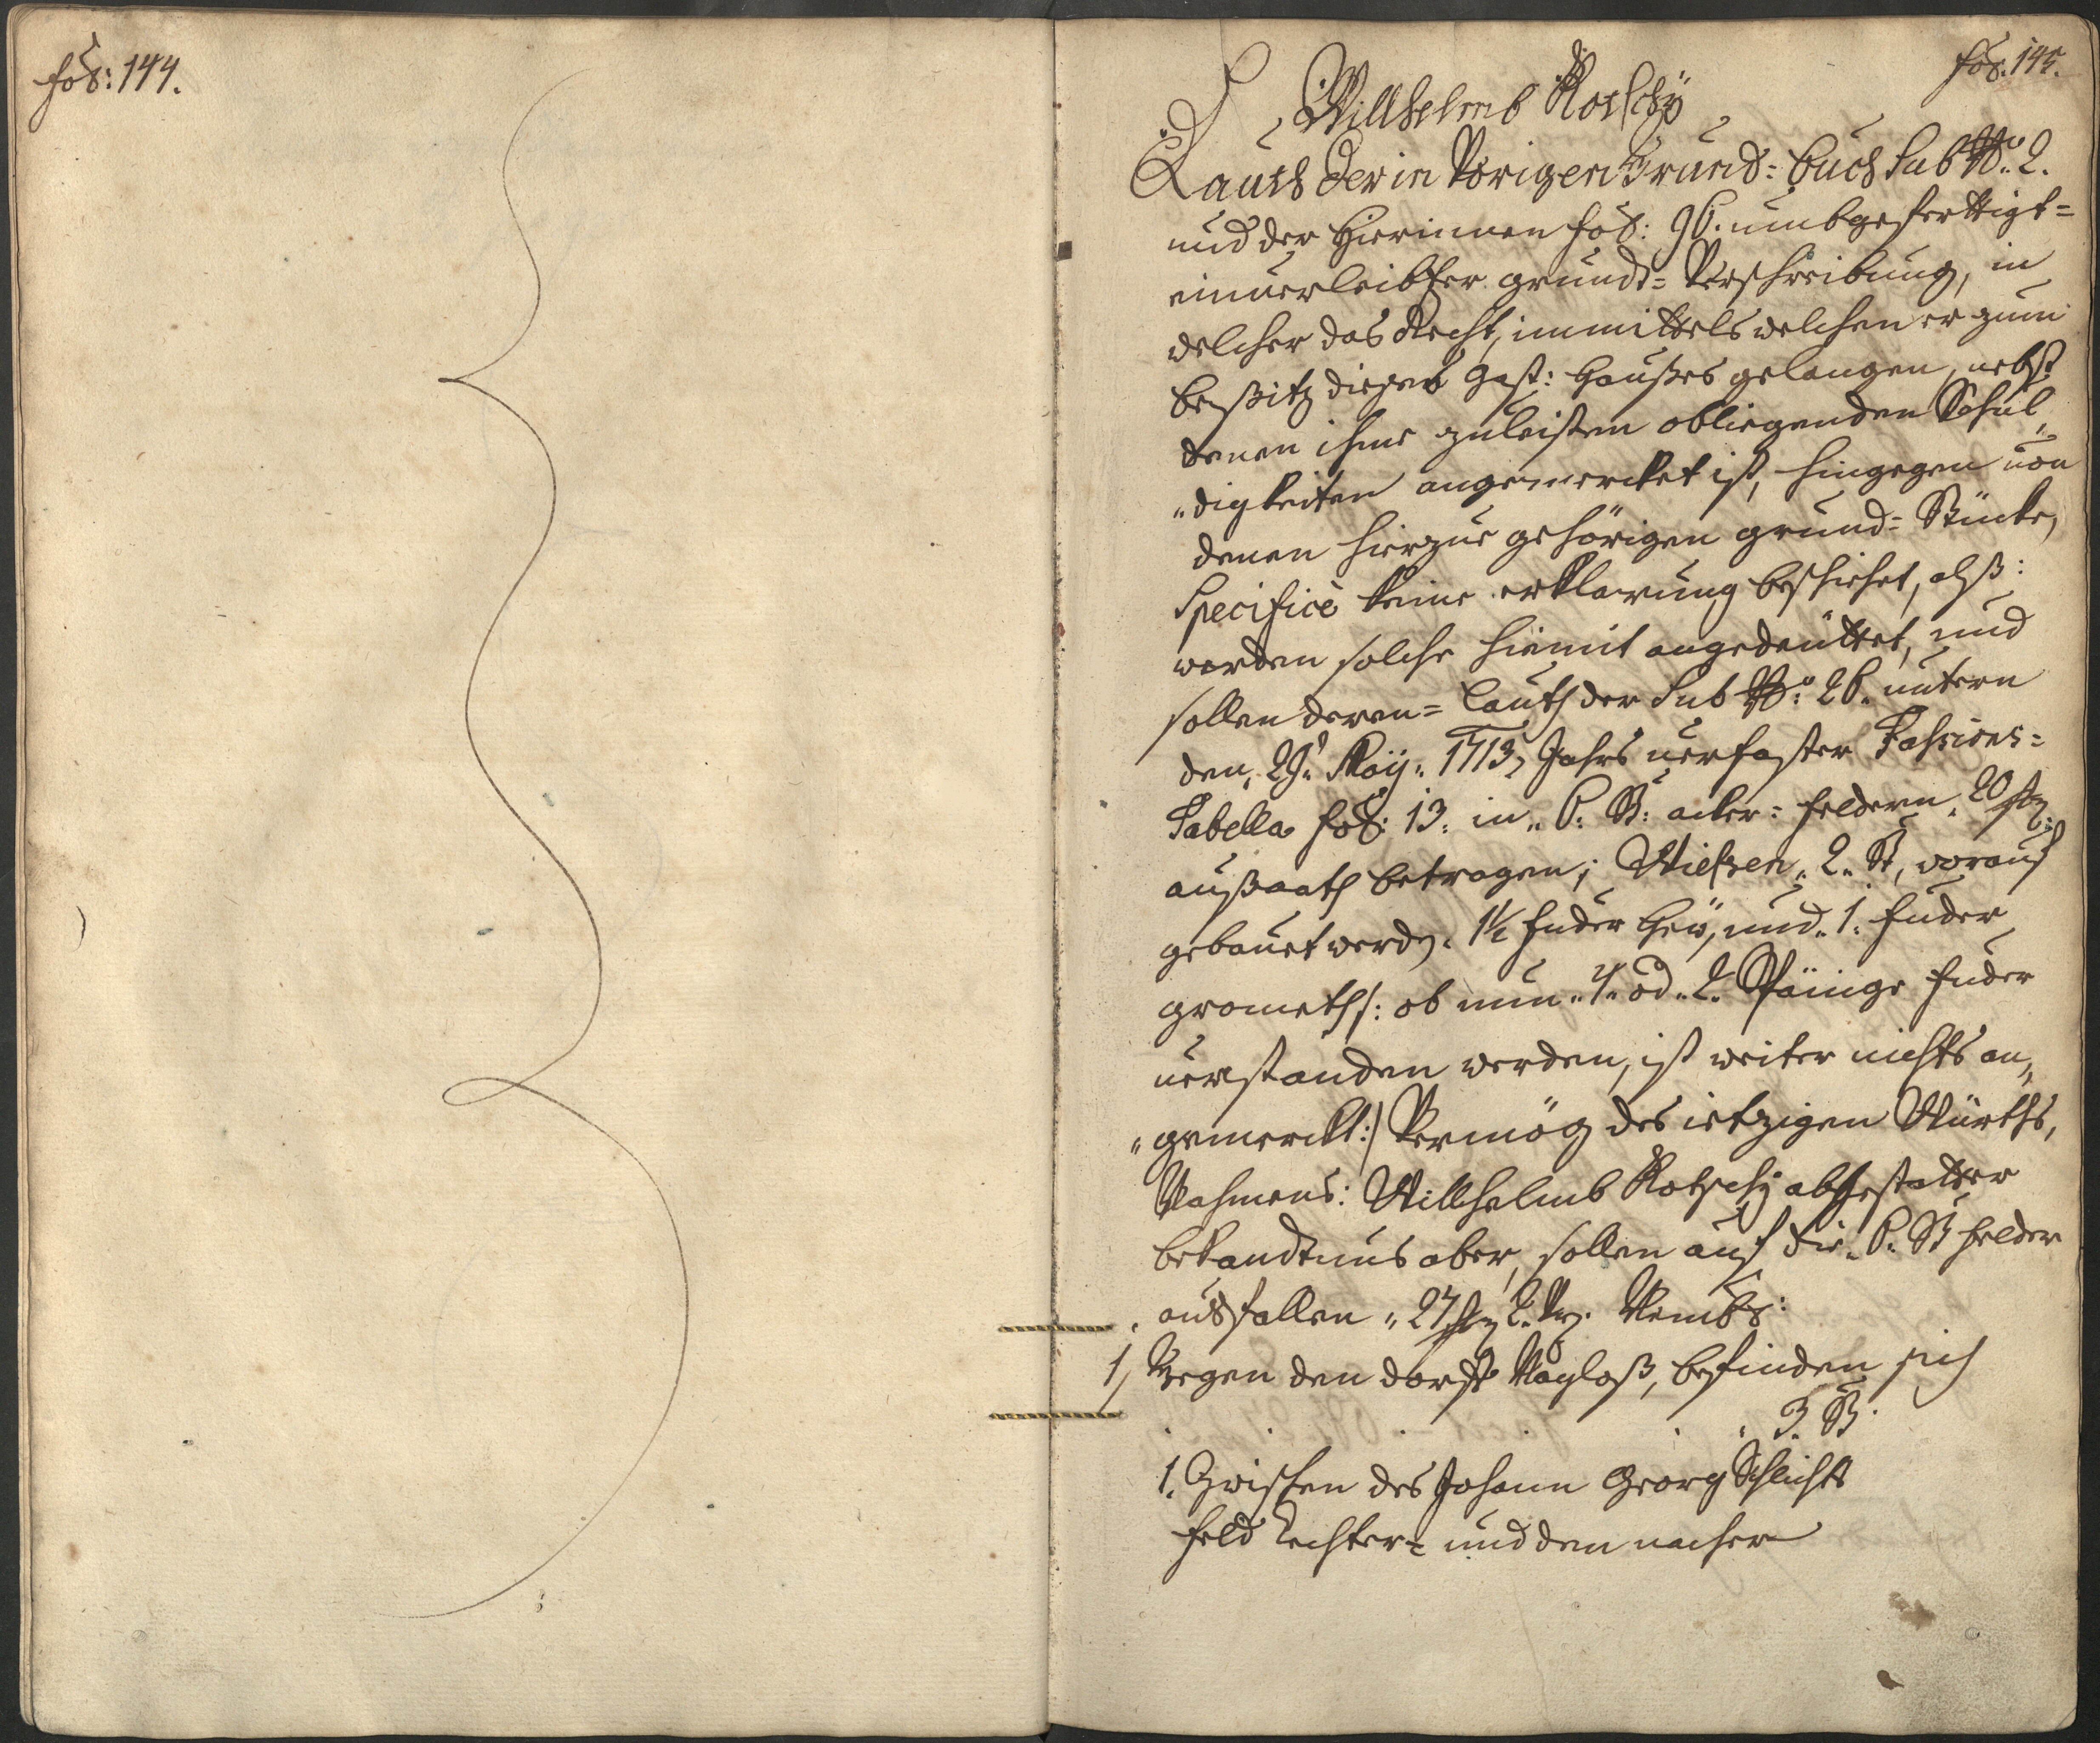 fol: 144.
fol: 145.
Willhelmb Kotschÿ
Lauth der in Vorigen Grund=buch Sub No. 2.
und der hierinnen fol: 96. umbgeferttigt=
einverleibter grundt=Verschreibung, in
welcher das Recht, immittels welchen er zum
bes̈itz dieses Gast:hausses gelangen, nebst
denen ihme zuleisten obliegenden Schul„
„digkeiten angemercket ist, hingegen von
denen hierzue gehörigen grund=Stücke,
Specificè keine erklarung beschiehet, alß:
werden solche hiemit angedeüttet, und
sollen deren=lauth der Sub No: 26. untern
den, 29t Maÿ. 1713, Jahrs verfaster Fassions=
Tabella fol: 13. in„ 6: St: acker=feldern. 20 stz:
außsaath betragen; Wießen„ 2„ St, worauf
gebauet werdn. 1½ fuder heü, und„ 1. fuder
grometh /: ob nun„ 4„ od„ 2. Spänige fuder
verstanden werden, ist weiter nichts an„
„gemerckt :/ Vermög des ietzigen Würths,
Nahmens: Willhelmb Kotschÿ abgestatter
bekandtnus aber, sollen auf die„ 6: St felder
ausfallen „ 27 stz 2. Vrz. Nembl:
1, Gegen den dorff Kayloß, befinden sich
. . . . „ 3. St.
1. Zwischen des Johann Georg Schlichts
feld rechter= und den nacher